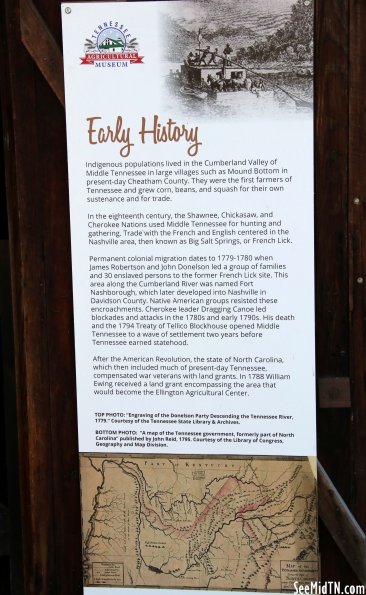 TENNESSEE
AGRICULTURAL
MUSEUM
Early History
Indigenous populations lived in the Cumberland Valley of
Middle Tennessee in large villages such as Mound Bottom in
present-day Cheatham County. They were the first farmers of
Tennessee and grew corn, beans, and squash for their own
sustenance and for trade.
In the eighteenth century, the Shawnee, Chickasaw, and
Cherokee Nations used Middle Tennessee for hunting and
gathering. Trade with the French and English centered in the
Nashville area, then known as Big Salt Springs, or French Lick.
Permanent colonial migration dates to 1779-1780 when
James Robertson and John Donelson led a group of families
and 30 enslaved persons to the former French Lick site. This
area along the Cumberland River was named Fort
Nashborough, which later developed into Nashville in
Davidson County. Native American groups resisted these
encroachments. Cherokee leader Dragging Canoe led
blockades and attacks in the 1780s and early 1790s. His death
and the 1794 Treaty of Tellico Blockhouse opened Middle
Tennessee to a wave of settlement two years before
Tennessee earned statehood.
After the American Revolution, the state of North Carolina,
which then included much of present-day Tennessee,
compensated war veterans with land grants. In 1788 William
Ewing received a land grant encompassing the area that
would become the Ellington Agricultural Center.
TOP PHOTO: "Engraving of the Donelson Party Descending the Tennessee River,
1779." Courtesy of the Tennessee State Library & Archives.
BOTTOM PHOTO: "A map of the Tennessee government, formerly part of North
Carolina" published by John Reid, 1795. Courtesy of the Library of Congress,
Geography and Map Division.
PART KENTUCKY
SeeMidTN.com